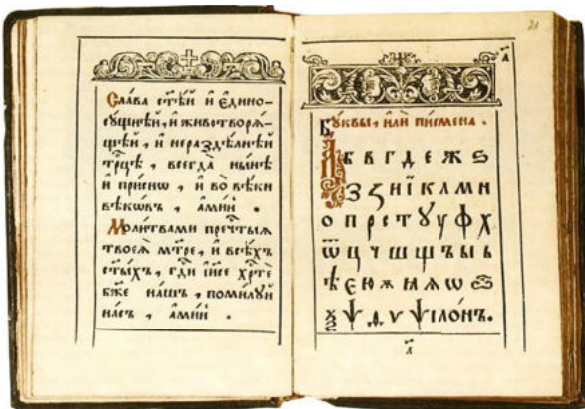 Сла́ва ст҃ѣ́й и҆ є҆дино-
сꙋ́щнѣй, и҆ животворѧ́-
щей, и҆ нераздѣ́лнѣй
трⷪ҇цѣ, всегда̀ ны́нѣ
и҆ при́снѡ, и҆ во вѣ́ки
вѣкѡ́въ, а҆ми́нь.
Моли́твами пречⷭ҇тыѧ
твоеѧ̀ мт҃ре, и҆ всѣ́хъ
ст҃ы́хъ, гдⷭ҇и і҆и҃се хрⷭ҇тѐ
бж҃е на́шъ, поми́лꙋй
на́съ, а҆ми́нь.
21
а҃
Бꙋ́квы, и҆лѝ писмена̀.
А Б В Г Д Е Ж Ѕ
З И Ї К Л М Н
О П Р С Т Ѹ Ꙋ Ф Х
Ѿ Ц Ч Ш Щ Ъ Ы Ь
Ѣ Є Ю Ѫ Ѧ Ѡ
Ѯ Ѱ Ѵ